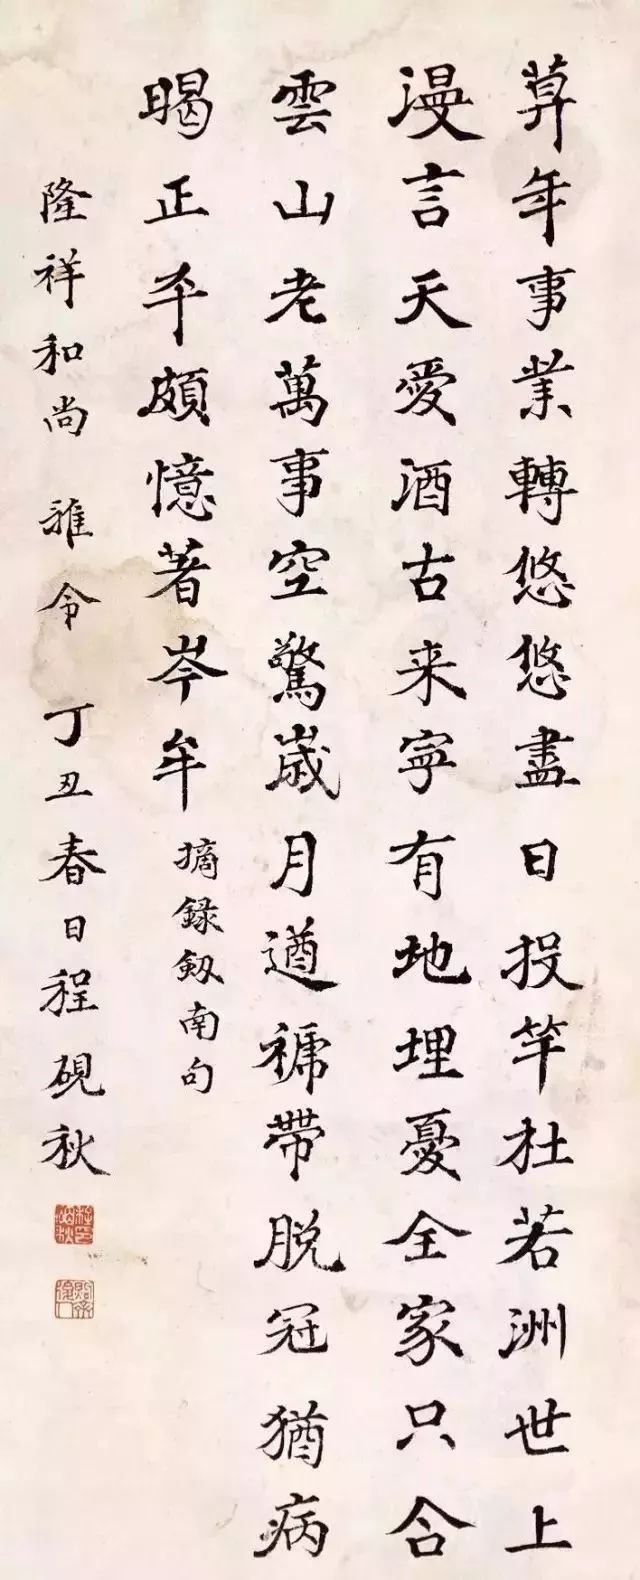 算年事業轉悠悠盡日投竿杜若洲世上
漫言天愛酒古来寧有地埋憂全家只合
雲山老萬事空驚歲月遒褫帶脱冠猶病
暍正平頗憶著岑牟
摘録劔南句
隆祥和尚 雅令 丁丑春日程硯秋